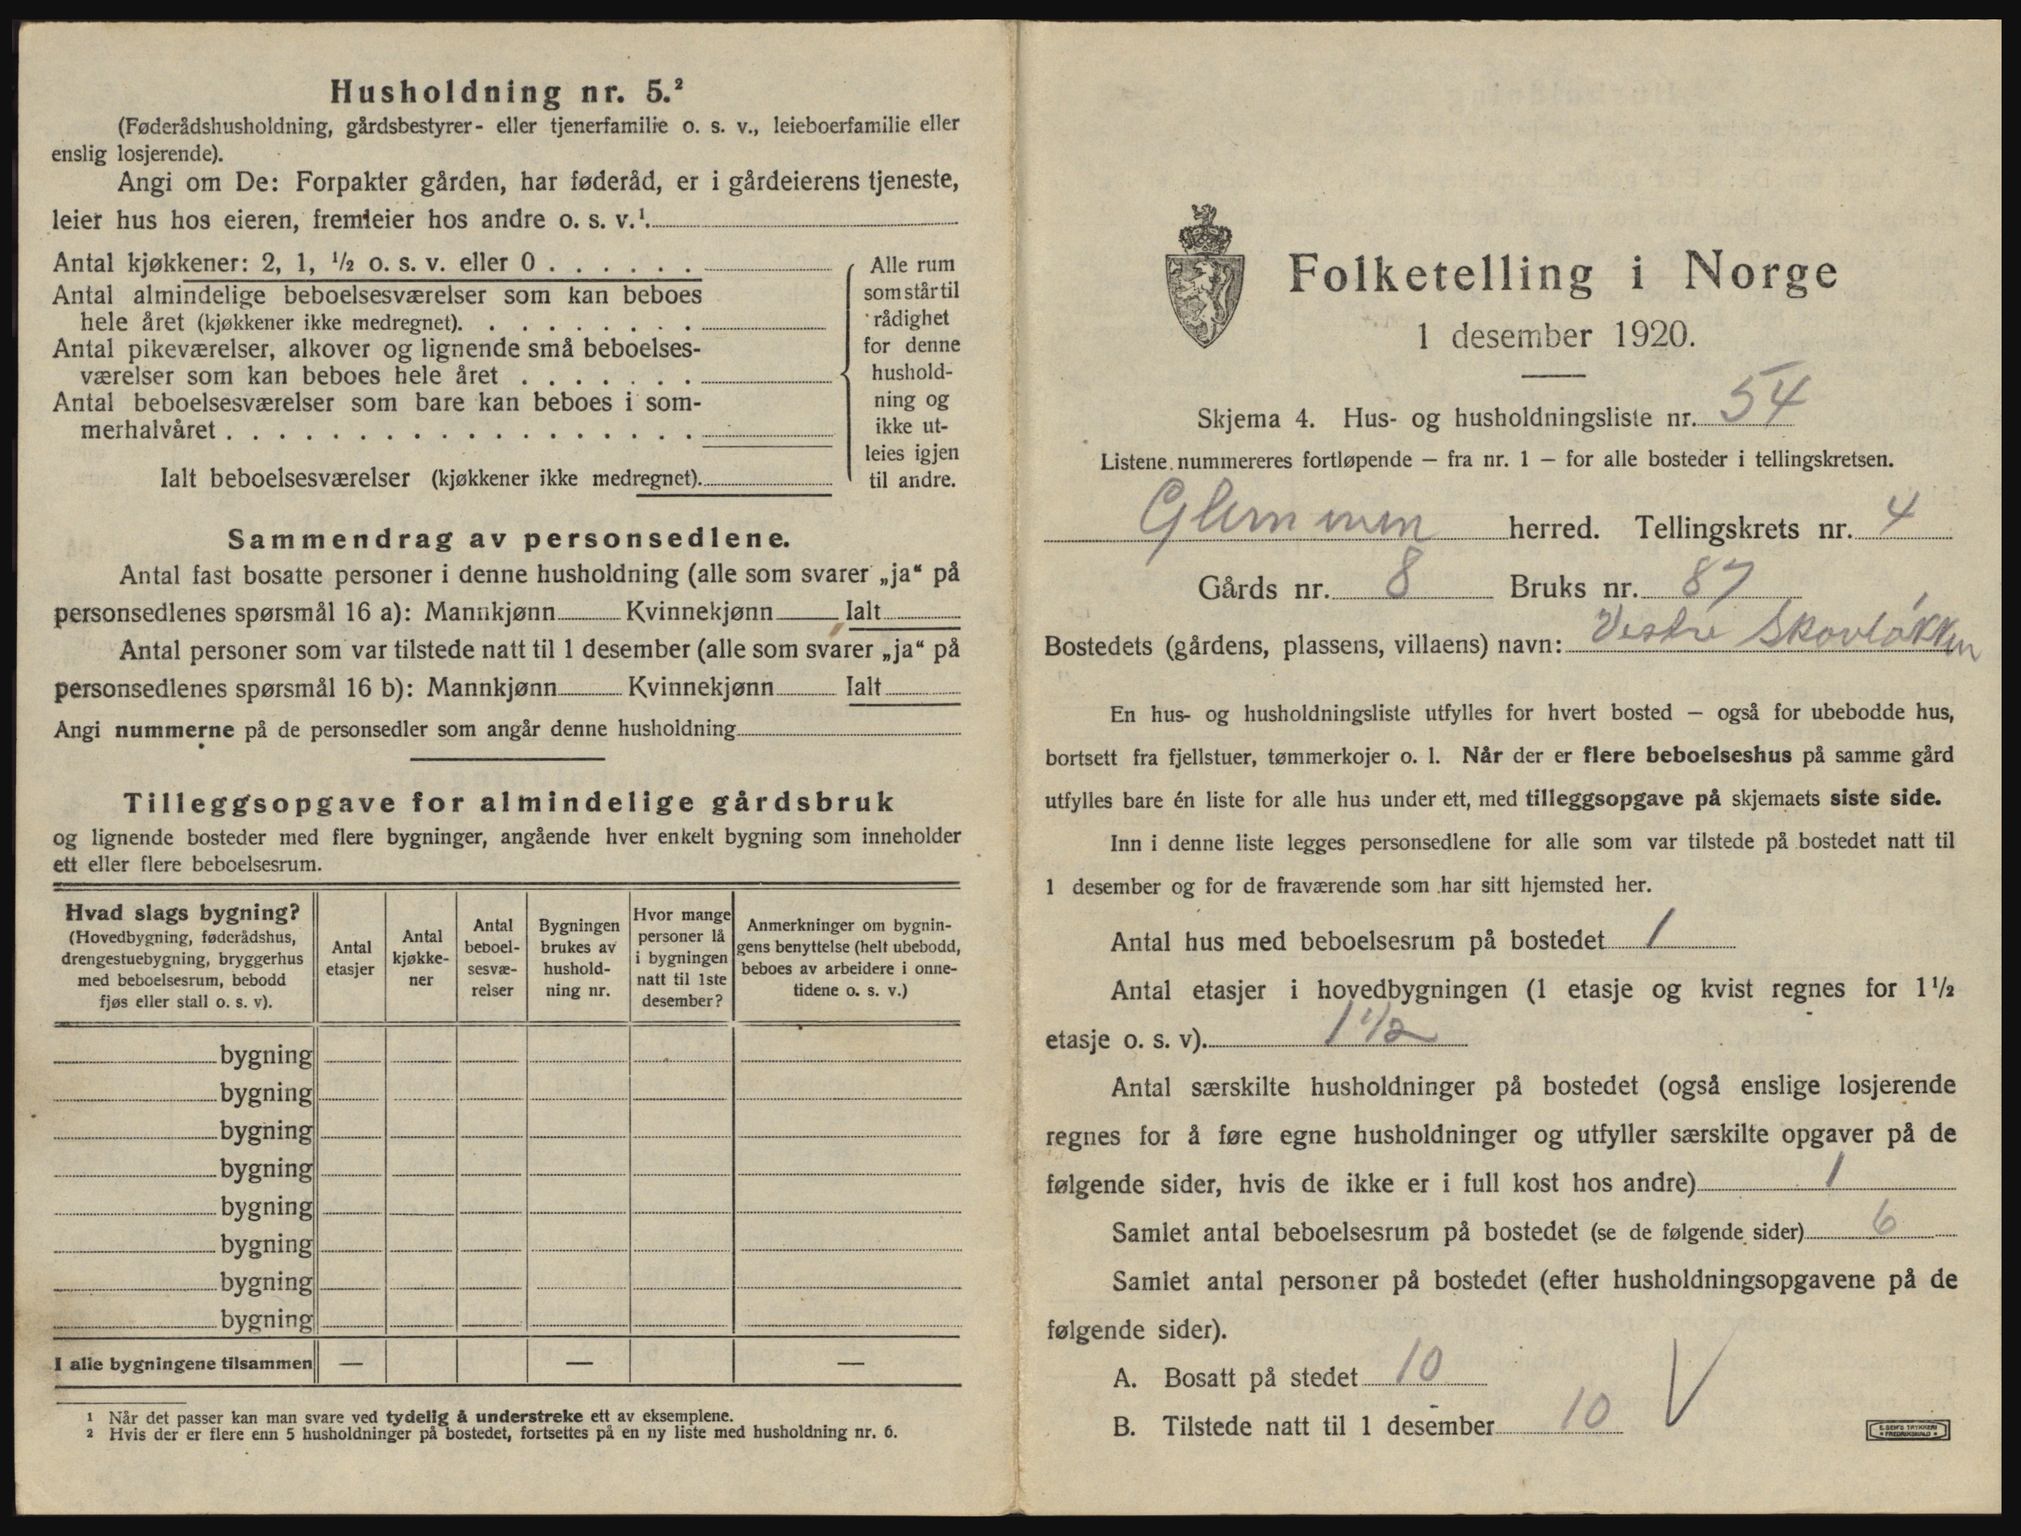 Husholdning nr. 5.²
(Føderådshusholdning, gårdsbestyrer- eller tjenerfamilie o. s. v., leieboerfamilie eller
enslig losjerende).
Angi om De: Forpakter gården, har føderåd, er i gårdeierens tjeneste,
leier hus hos eieren, fremleier hos andre o. s. v.¹.
Antal kjøkkener: 2, 1, ½ o. s. v. eller 0 . . . . . .
Antal almindelige beboelsesværelser som kan beboes
hele året (kjøkkener ikke medregnet). . . . . . . . .
Antal pikeværelser, alkover og lignende små beboelses-
værelser som kan beboes hele året . . . . . . .
Antal beboelsesværelser som bare kan beboes i som-
merhalvåret . . . . . . . . . . . . . . . . . .
Ialt beboelsesværelser (kjøkkener ikke medregnet).
Alle rum
som står til
rådighet
for denne
hushold-
ning og
ikke ut-
leies igjen
til andre.
Sammendrag av personsedlene.
Antal fast bosatte personer i denne husholdning (alle som svarer „ja“ på
personsedlenes spørsmål 16 a): Mannkjønn Kvinnekjønn Ialt
Antal personer som var tilstede natt til 1 desember (alle som svarer „ja“ på
personsedlenes spørsmål 16 b): Mannkjønn Kvinnekjønn Ialt
Angi nummerne på de personsedler som angår denne husholdning
Tilleggsopgave for almindelige gårdsbruk
og lignende bosteder med flere bygninger, angående hver enkelt bygning som inneholder
ett eller flere beboelsesrum.
Hvad slags bygning?
(Hovedbygning, føderådshus,
drengestuebygning, bryggerhus
med beboelsesrum, bebodd
fjøs eller stall o. s. v).
Antal
etasjer
Antal
kjøkke-
ner
Antal
beboel-
sesvæ-
relser
Bygningen
brukes av
hushold-
ning nr.
Hvor mange
personer lå
i bygningen
natt til 1ste
desember?
Anmerkninger om bygnin-
gens benyttelse (helt ubebodd,
beboes av arbeidere i onne-
tidene o. s. v.)
bygning
bygning
bygning
bygning
bygning
bygning
bygning
bygning
I alle bygningene tilsammen — — —
¹ Når det passer kan man svare ved tydelig å understreke ett av eksemplene.
² Hvis der er flere enn 5 husholdninger på bostedet, fortsettes på en ny liste med husholdning nr. 6.
Folketelling i Norge
1 desember 1920.
Skjema 4. Hus- og husholdningsliste nr. 54
Listene nummereres fortløpende — fra nr. 1 — for alle bosteder i tellingskretsen.
Glemmen herred. Tellingskrets nr. 4
Gårds nr. 8 Bruks nr. 87
Bostedets (gårdens, plassens, villaens) navn: Vestre Skovløkken
En hus- og husholdningsliste utfylles for hvert bosted — også for ubebodde hus,
bortsett fra fjellstuer, tømmerkojer o. l. Når der er flere beboelseshus på samme gård
utfylles bare én liste for alle hus under ett, med tilleggsopgave på skjemaets siste side.
Inn i denne liste legges personsedlene for alle som var tilstede på bostedet natt til
1 desember og for de fraværende som har sitt hjemsted her.
Antal hus med beboelsesrum på bostedet 1
Antal etasjer i hovedbygningen (1 etasje og kvist regnes for 1½
etasje o. s. v). 1 1/2
Antal særskilte husholdninger på bostedet (også enslige losjerende
regnes for å føre egne husholdninger og utfyller særskilte opgaver på de
følgende sider, hvis de ikke er i full kost hos andre) 1
Samlet antal beboelsesrum på bostedet (se de følgende sider) 6
Samlet antal personer på bostedet (efter husholdningsopgavene på de
følgende sider).
A. Bosatt på stedet 10
B. Tilstede natt til 1 desember 10